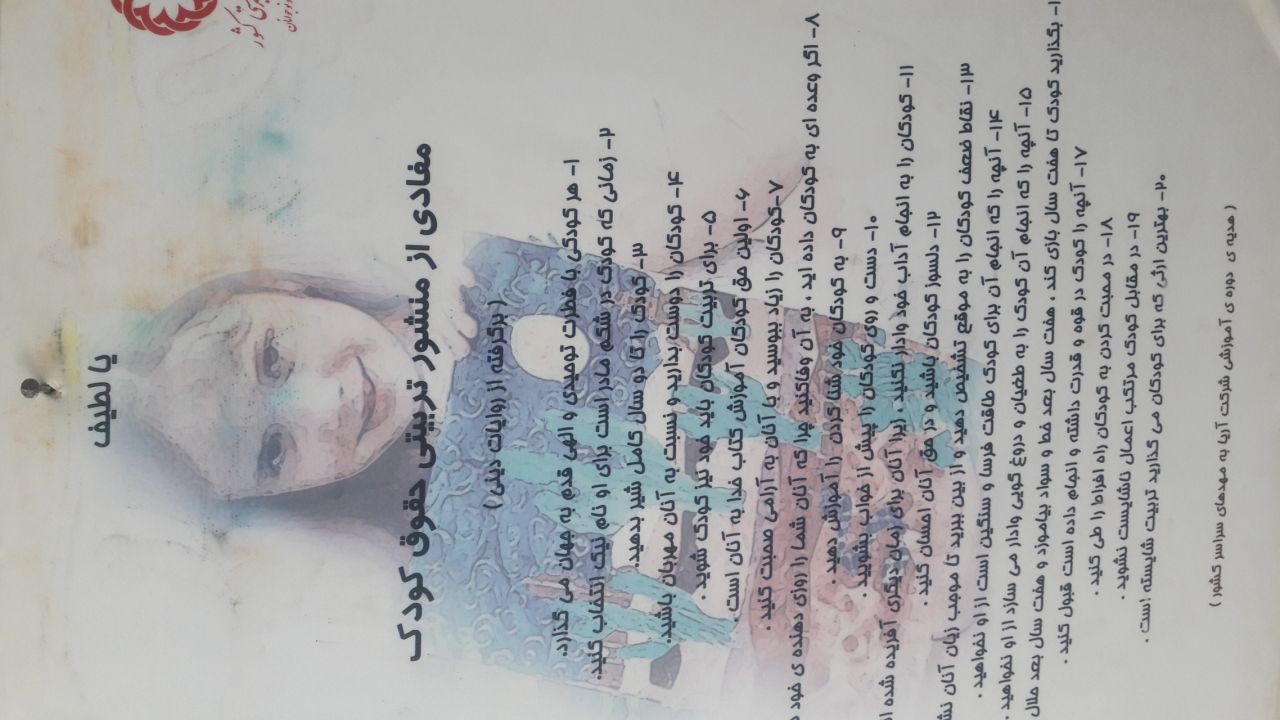 یا لطیف
مفادی از منشور تربیتی حقوق کودک
( برگرفته از روایات دینی )
۱- هر کودکی با فطرت توحیدی و الهی قدم به جهان می گذارد.
۲- زمانی که کودک در شکم مادر است برای او نام نیک انتخاب کنید.
۳- کودک را تا دو سال کامل شیر بدهید.
۴- کودکان را دوست بدارید و نسبت به آنان مهربان باشید.
۵- برای تربیت کودکان باید خود نیز کودک شوید .
۶- اولین حق کودکان آموزش کتاب خدا به آنان است .
۷-کودکان را زیاد ببوسید و با آنان به آرامی صحبت کنید .
۸- اگر وعده ای به کودکان داده اید ، به آن وفاکنید چرا که آنان شما را روزی دهنده ی خود
۹- به کودکان خود شنا کردن را آموزش دهید .
۱۰- دست و روی کودکان را پیش از خواب بشویید .
۱۱- کودکان را به انجام آداب خود وادار نکنید ، زیرا آنان برای زمان دیگری آفریده شده
۱۲- دلسوز کودکان باشید و در حق آنان احسان کنید .
۱۳- نقاط ضعف کودکان را به موقع تشخیص دهید و از بین ببرید تا موجب زیان آنان
۱۴- آنچه را که انجام آن برای کودک طاقت فرسا و سنگین است از او نخواهید .
۱۵- آنچه را که انجام آن کودک را به طغیان و دروغ گویی وادار می سازد از او نخواهید .
بگذارید کودک تا هفت سال بازی کند ، هفت سال بعد خط و سواد بیاموزد و هفت سال بعد حلال
۱۷- آنچه را کودک در قوه و قدرت داشته و انجام داده است قبول کنید .
۱۸- در محبت کردن به کودکان راه افراط را طی کنید .
۱۹- در مقابل کودک مرتکب اعمال ناشایست نشوید .
۲۰- بهترین ارثی که برای کودکان می گذارید تربیت شایسته است .
( هدیه ی دوره ی آموزشی شرکت آریا به مهدهای سراسر کشور )